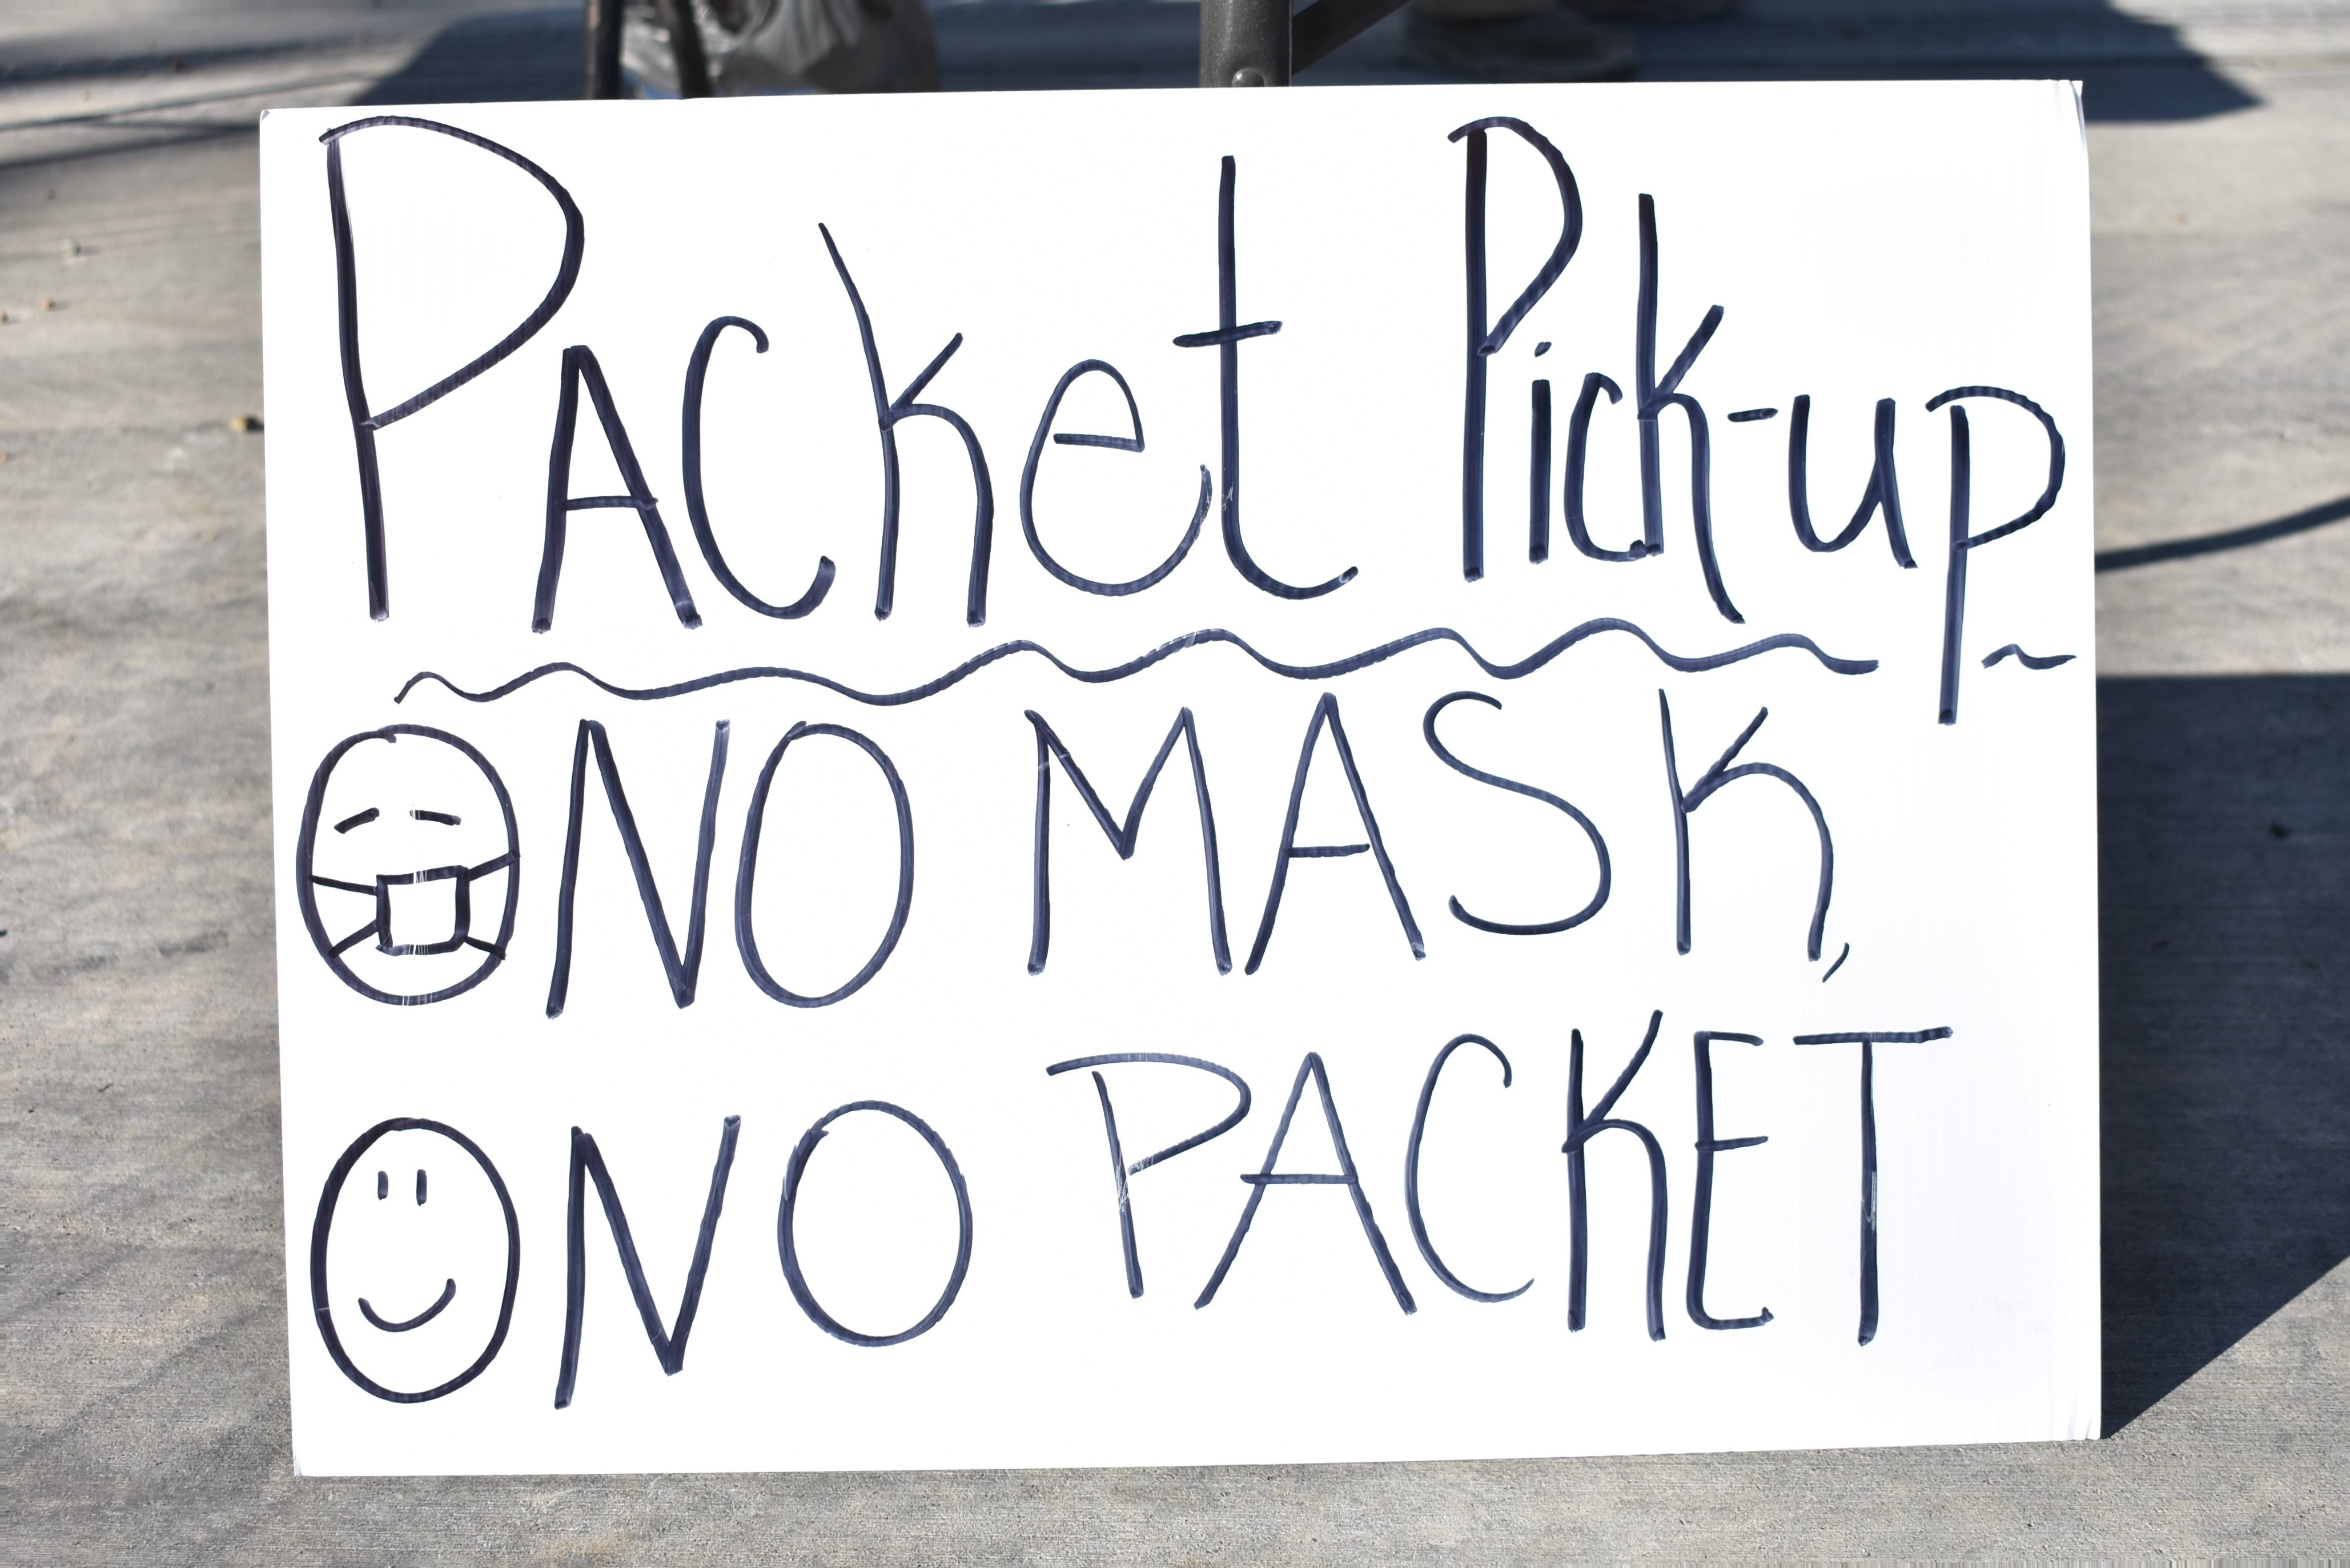 PACket Pick-up
NO MASK,
NO PACKET